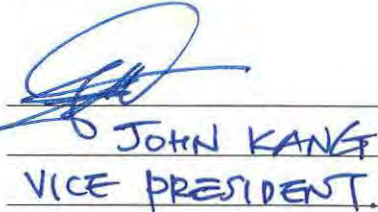 JOHN KANG
VICE PRESIDENT.